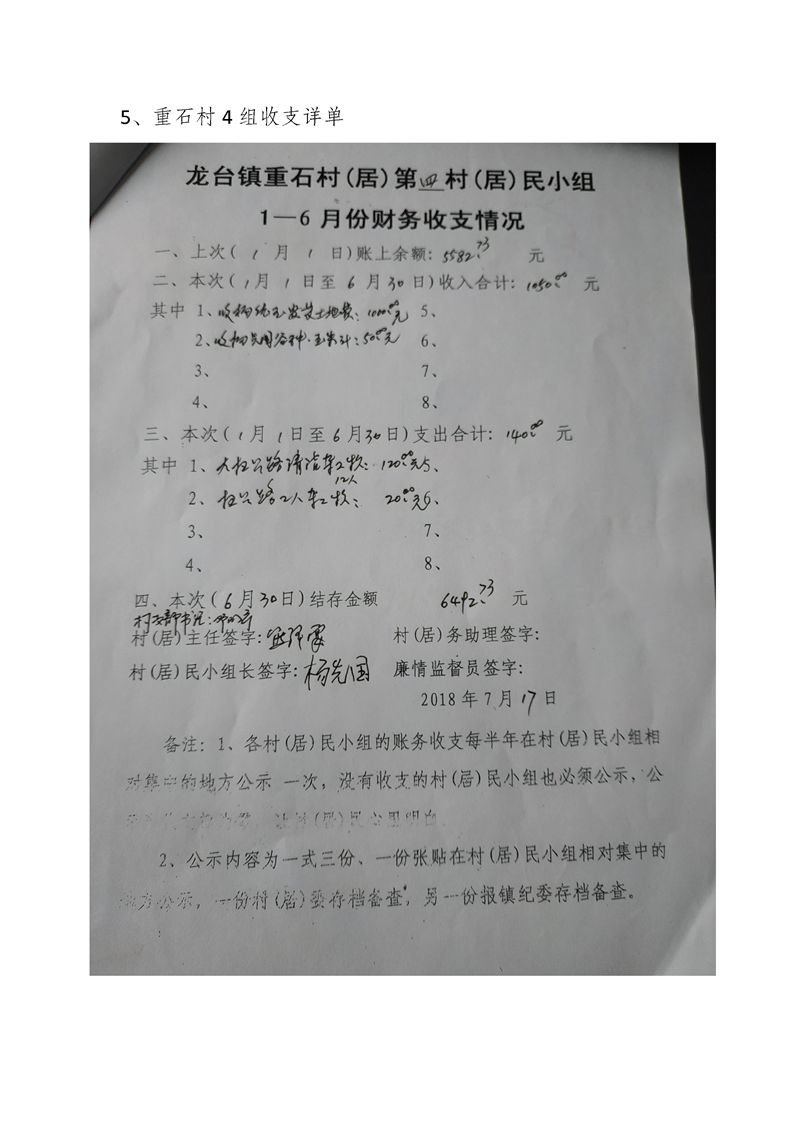 5、重石村4组收支详单
龙台镇重石村(居)第四村(居)民小组
1—6月份财务收支情况
一、上次(1月1日)账上余额:5582.73元
二、本次(1月1日至6月30日)收入合计:1050.00元
其中 1、收杨 土地款:1000.00元 5、
2、收杨 谷种.玉米 :50.00元 6、
3、 7、
4、 8、
三、本次(1月1日至6月30日)支出合计:140.00元
其中 1、大 公路请 12人 :120.00元 5、
2、 公路2人 :20.00元 6、
3、 7、
4、 8、
四、本次(6月30日)结存金额 6492.73 元
村支部书记:
村(居)主任签字: 村(居)务助理签字:
村(居)民小组长签字:杨先国 廉情监督员签字:
2018年7月17日
备注:1、各村(居)民小组的账务收支每半年在村(居)民小组相
对集中的地方公示 一次,没有收支的村(居)民小组也必须公示,公
村(居)民心里明白.
2、公示内容为一式三份、一份张贴在村(居)民小组相对集中的
地方公示,一份村(居)委存档备查,另一份报镇纪委存档备查。